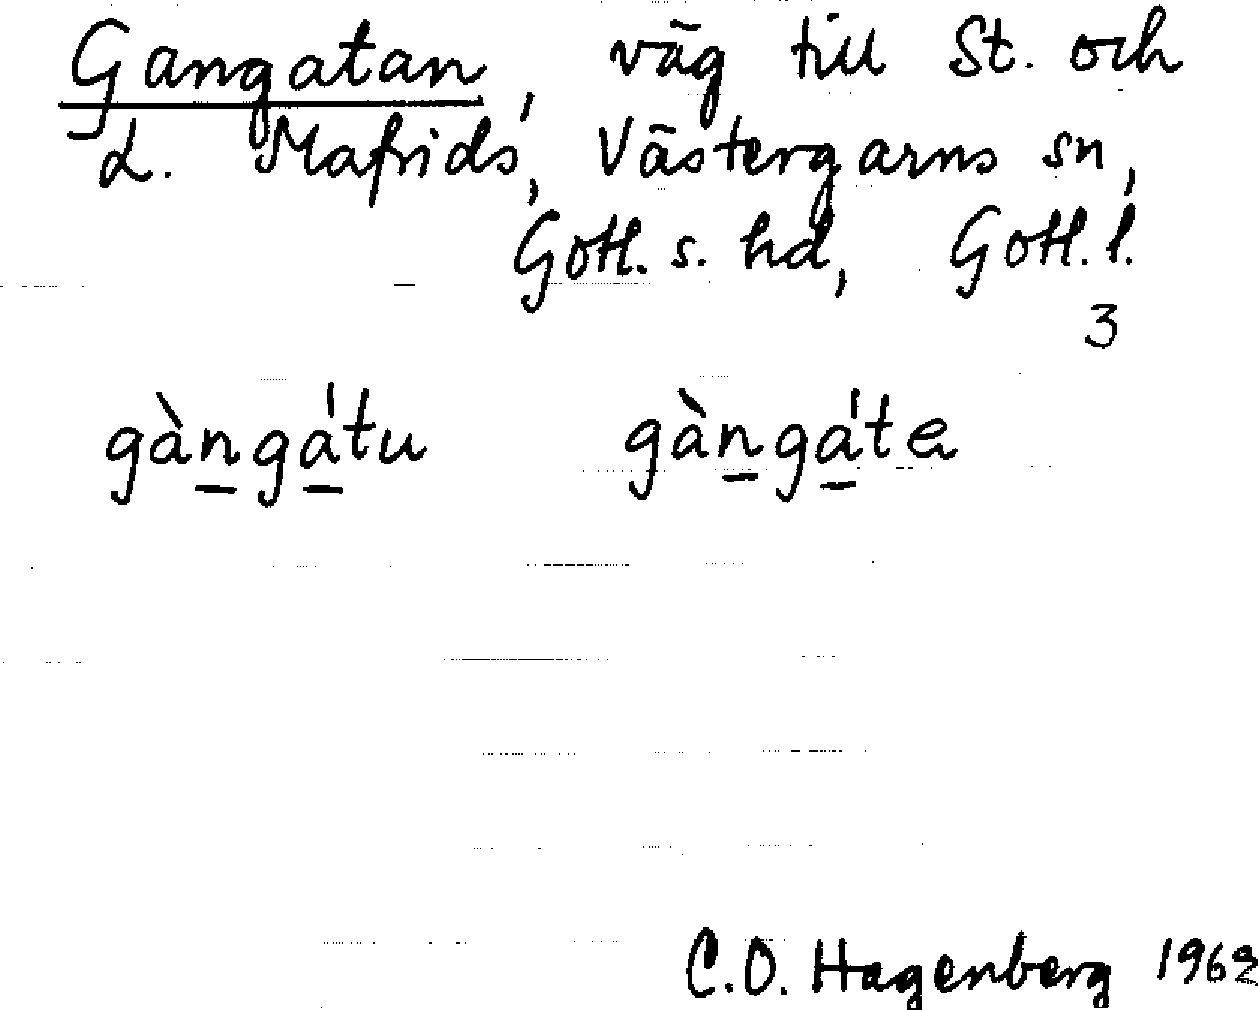 Gangatan, väg till St. och
L. Mafrids, Västergarns sn,
Gotl. s. hd, Gotl. l.
3
gàngátu gàngáte
C.O. Hagenberg 1962